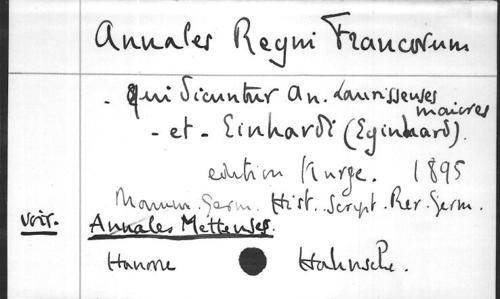 Annales Regni Francorum
- qui dicuntur An. Laurissenses
maiores
- et - Einhardi (Eginhard).
edition Kurze. 1895
Monum. Germ. Hist. Script. Rer. Germ.
voir. Annales Mettenses.
Hanovre Hahnsche.